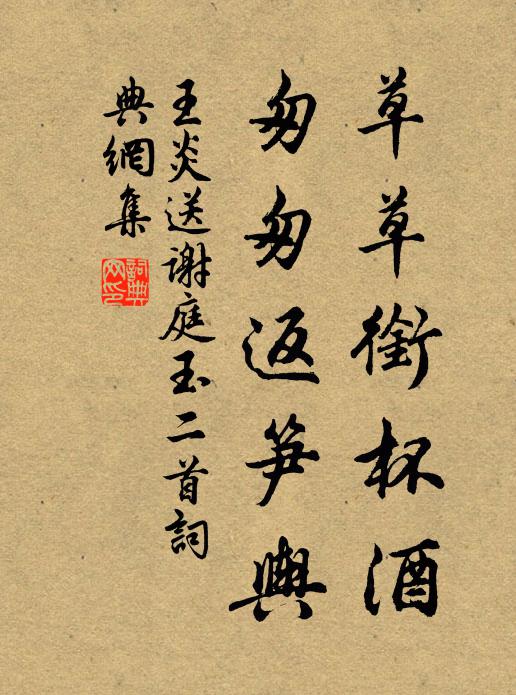 草草銜杯酒
匆匆返笋輿
王炎送謝庭玉二首詞
典網集
詞典
网印